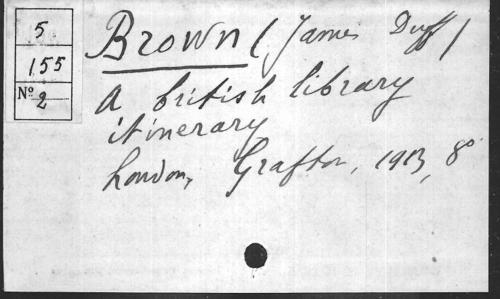 5
155
Nº 2
Brown (James Duff)
A british library
itinerary
London, Grafton, 1913, 8º